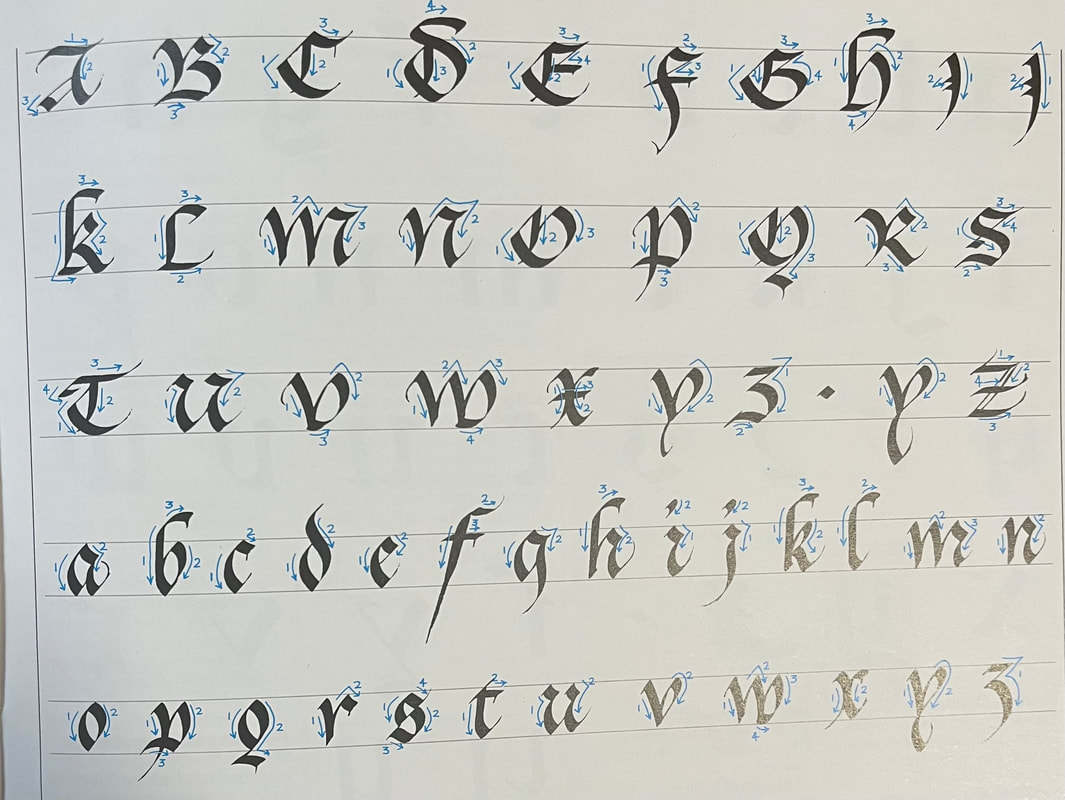 A B C D E F G H I J
K L M N O P Q R S
T U V W X Y Z · Y Z
a b c d e f g h i j k l m n
o p q r s t u v w x y z